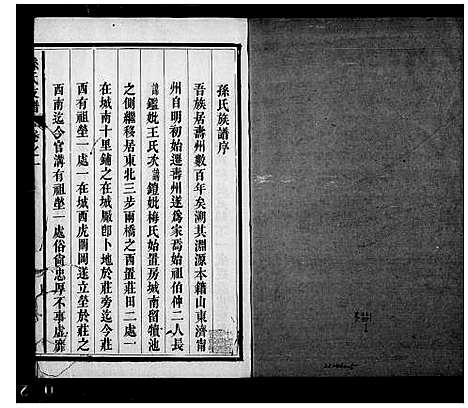 孫氏族譜序
吾族居壽州數百年矣溯其淵源本籍山東濟甯
州自明初始遷壽州遂爲家焉始祖伯仲二人長
諱鑑妣王氏次諱鎧妣梅氏始置房城南留犢池
之側繼移居東北三步兩橋之西置莊田二處一
在城南十里鋪之在城厰卽卜地於莊旁迄今莊
西有祖塋一處一在城西虎關岡遂立塋於莊之
西南迄今官溝有祖塋一處俗尙忠厚不事虛靡
孫氏族譜